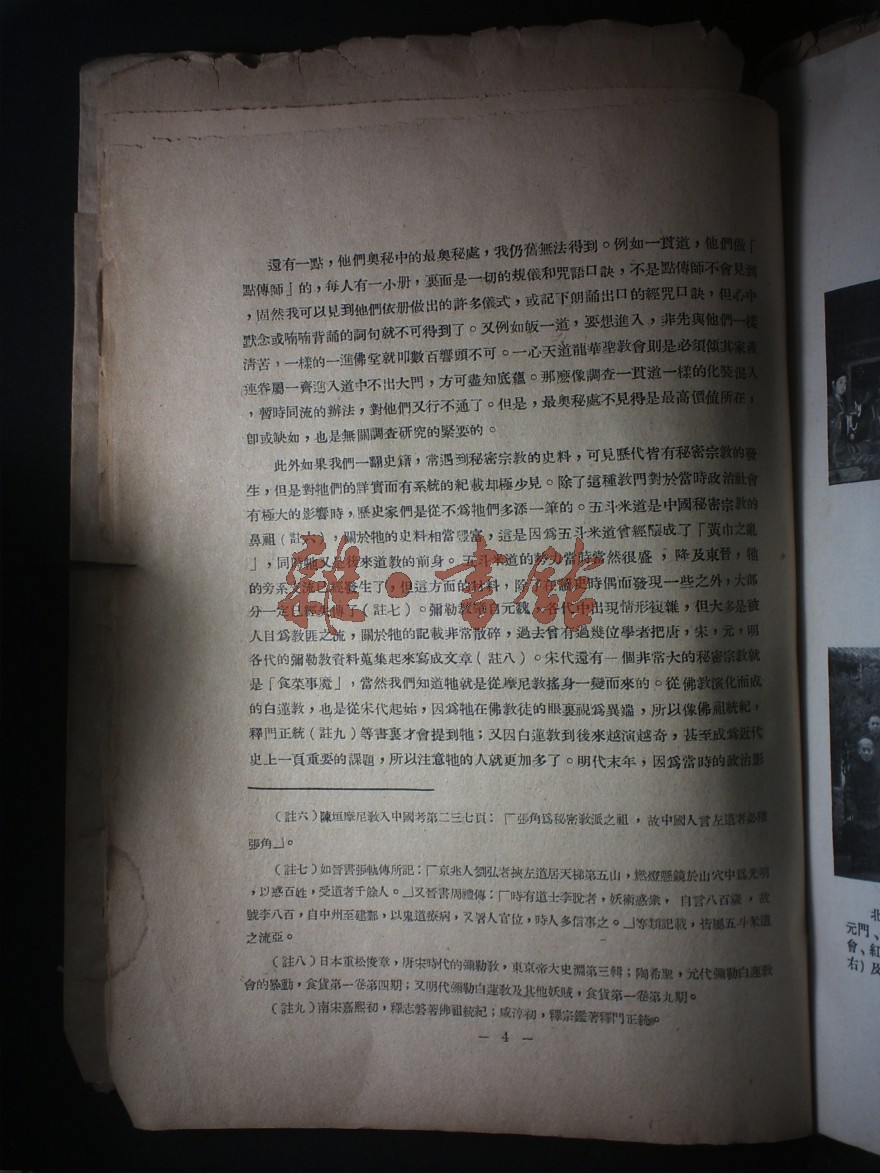 還有一點，他們奧秘中的最奧秘處，我仍舊無法得到。例如一貫道，他們做「
點傳師」的，每人有一小册，裏面是一切的規儀和咒語口訣，不是點傳師不會見到
，固然我可以見到他們依册做出的許多儀式，或記下朗誦出口的經咒口訣，但心中
默念或喃喃背誦的詞句就不可得到了。又例如皈一道，要想進入，非先與他們一樣
清苦，一樣的一進佛堂就叩數百響頭不可。一心天道龍華聖教會則是必須傾其家產
連眷屬一齊進入道中不出大門，方可盡知底蘊。那麽像調查一貫道一樣的化裝混入
，暫時同流的辦法，對他們又行不通了。但是，最奧秘處不見得是最高價值所在，
卽或缺如，也是無關調查研究的緊要的。
此外如果我們一翻史籍，常遇到秘密宗教的史料，可見歷代皆有秘密宗教的發
生，但是對牠們的詳實而有系統的紀載却極少見。除了這種教門對於當時政治社會
有極大的影響時，歷史家們是從不爲牠們多添一筆的。五斗米道是中國秘密宗教的
鼻祖（註六），關於牠的史料相當豐富，這是因爲五斗米道曾經釀成了「黃巾之亂
」，同時牠又是後來道教的前身。五斗米道的勢力當時當然很盛，降及東晉，牠
的旁系交流已經發生了，但這方面的材料，除了在翻史時偶而發現一些之外，大部
分一定已經失傳了（註七）。彌勒教肇自元魏，各代中出現情形複雜，但大多是被
人目爲教匪之流，關於牠的記載非常散碎，過去曾有過幾位學者把唐，宋，元，明
各代的彌勒教資料蒐集起來寫成文章（註八）。宋代還有一個非常大的秘密宗教就
是「食菜事魔」，當然我們知道牠就是從摩尼教搖身一變而來的。從佛教演化而成
的白蓮教，也是從宋代起始，因爲牠在佛教徒的眼裏視爲異端，所以像佛祖統紀，
釋門正統（註九）等書裏才會提到牠；又因白蓮教到後來越演越奇，甚至成爲近代
史上一頁重要的課題，所以注意牠的人就更加多了。明代末年，因爲當時的政治影
（註六）陳垣摩尼教入中國考第二三七頁：「張角爲秘密教派之祖，故中國人言左道者必稱
張角」。
（註七）如晉書張軌傳所記：「京兆人劉弘者挾左道居天梯第五山，燃燈懸鏡於山穴中爲光明
，以惑百姓，受道者千餘人。」又晉書周禮傳：「時有道士李脫者，妖術惑衆，自言八百歲，故
號李八百，自中州至建鄴，以鬼道療病，又署人官位，時人多信事之。」等類記載，皆屬五斗米道
之流亞。
（註八）日本重松俊章，唐宋時代的彌勒教，東京帝大史淵第三輯；陶希聖，元代彌勒白蓮教
會的暴動，食貨第一卷第四期；又明代彌勒白蓮教及其他妖賊，食貨第一卷第九期。
（註九）南宋嘉熙初，釋志磐著佛祖統紀；咸淳初，釋宗鑑著釋門正統。
— 4 —
雜·書館
北
元門、
會、紅
右）及